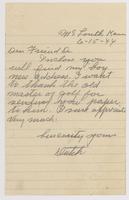 McLouth Kan
6-15-44
Dear Friend
Inclose you
will find my boy
new address. I want
to thank the old
master of golf for
sending home paper
to him. I sure appreciate
very much.
Sincerely yours
Dutch